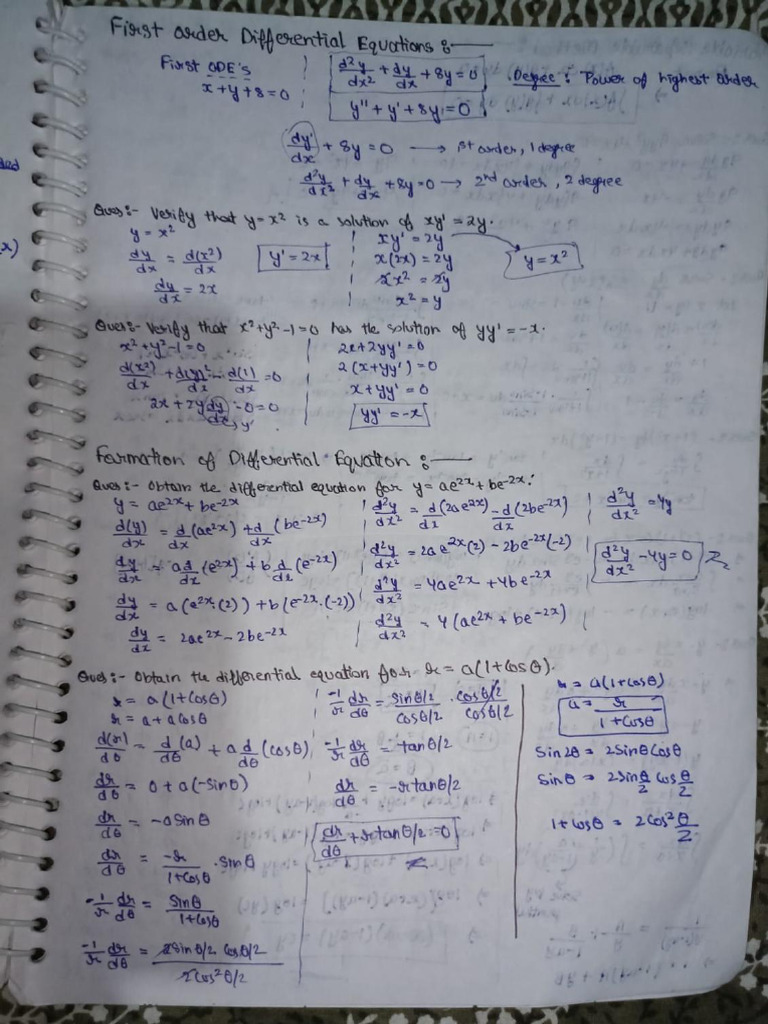 First order Differential Equations :—
First ODE's
x+y+8=0
d²y/dx² + dy/dx + 8y = 0
y'' + y' + 8y = 0
Degree : Power of highest order
dy'/dx + 8y = 0 → 1st order, 1 degree
d²y/dx² + dy/dx + 8y = 0 → 2nd order, 2 degree
Ques:- Verify that y = x² is a solution of xy' = 2y.
y = x²
dy/dx = d(x²)/dx
dy/dx = 2x
y' = 2x
xy' = 2y
x(2x) = 2y
2x² = 2y
x² = y
y = x²
Ques:- Verify that x²+y²-1=0 has the solution of yy' = -x.
x²+y²-1=0
d(x²)/dx + d(y)²/dx - d(1)/dx = 0
2x + 2y dy/dx - 0 = 0
y'
2x+2yy' = 0
2(x+yy') = 0
x+yy' = 0
yy' = -x
Formation of Differential Equation :—
Ques:- Obtain the differential equation for y = ae^2x + be^-2x.
y = ae^2x + be^-2x
d(y)/dx = d/dx (ae^2x) + d/dx (be^-2x)
dy/dx = a d/dx (e^2x) + b d/dx (e^-2x)
dy/dx = a(e^2x·(2)) + b(e^-2x·(-2))
dy/dx = 2ae^2x - 2be^-2x
d²y/dx² = d/dx (2ae^2x) - d/dx (2be^-2x)
d²y/dx² = 2ae^2x(2) - 2be^-2x(-2)
d²y/dx² = 4ae^2x + 4be^-2x
d²y/dx² = 4(ae^2x + be^-2x)
d²y/dx² = 4y
d²y/dx² - 4y = 0
Ques:- Obtain the differential equation for r = a(1+cosθ).
r = a(1+cosθ)
r = a + a cosθ
d(r)/dθ = d/dθ (a) + a d/dθ (cosθ)
dr/dθ = 0 + a(-sinθ)
dr/dθ = -a sinθ
dr/dθ = -r/1+cosθ · sinθ
-1/r dr/dθ = sinθ/1+cosθ
-1/r dr/dθ = 2sinθ/2 cosθ/2 / 2cos²θ/2
-1/r dr/dθ = sinθ/2 / cosθ/2 · cosθ/2 / cosθ/2
-1/r dr/dθ = tanθ/2
dr/dθ = -r tanθ/2
dr/dθ + r tanθ/2 = 0
r = a(1+cosθ)
a = r/1+cosθ
sin2θ = 2sinθcosθ
sinθ = 2sinθ/2 cosθ/2
1+cosθ = 2cos²θ/2